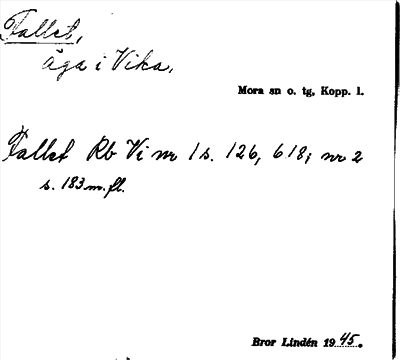 Fallet,
äga i Vika,
Mora sn o. tg, Kopp. l.
Fallet Rb Vi nr 1 s. 126, 618; nr 2
s. 183 m. fl.
Bror Lindén 1945.